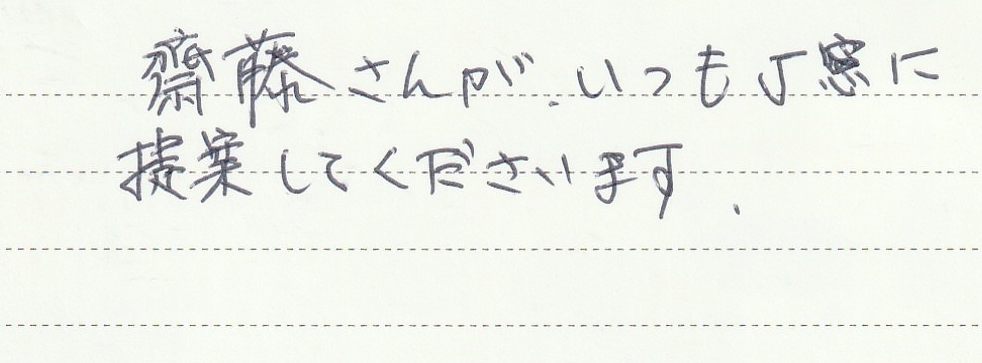 齋藤さんが、いつも丁寧に
提案してくださいます.